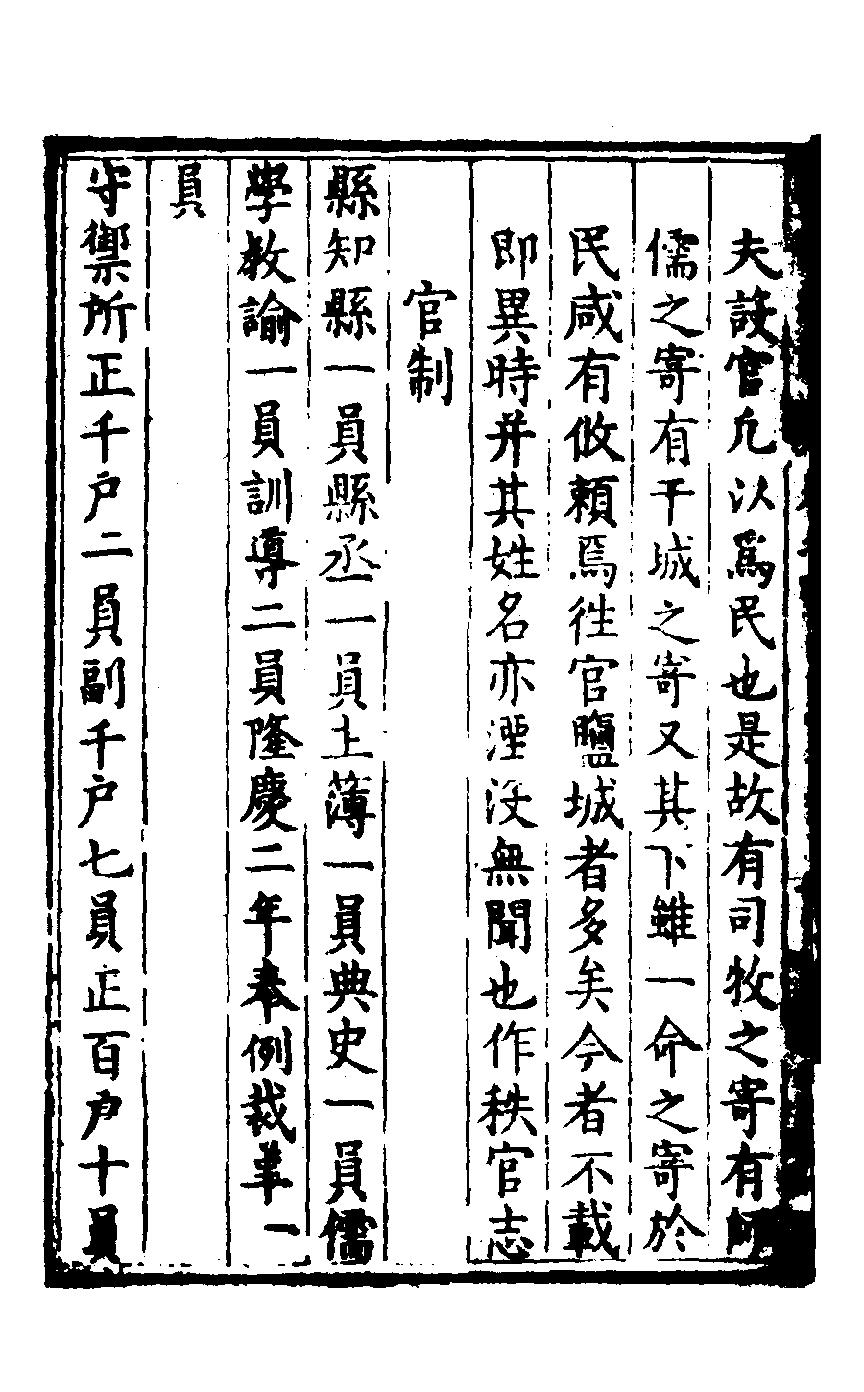 夫設官凢以爲民也是故有司牧之寄有師
儒之寄有干城之寄又其下雖一命之寄於
民咸有攸頼焉徃官鹽城者多矣今者不載
即異時并其姓名亦湮没無聞也作秩官志
官制
縣知縣一員縣丞一員主薄一員典史一員儒
學教諭一員訓導二員隆慶二年奉例裁革一
員
守禦所正千户二員副千户七員正百户十員